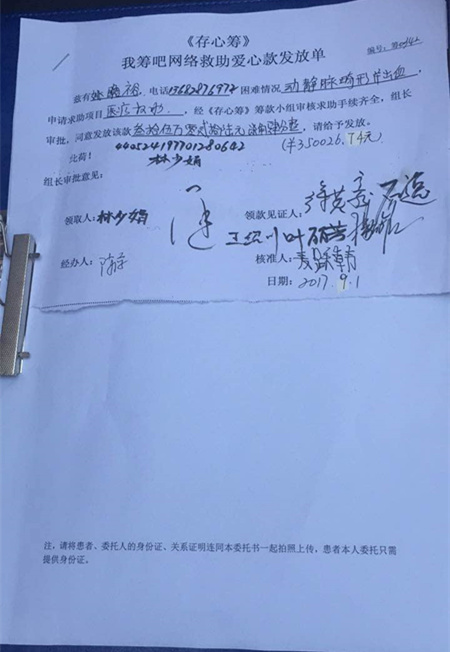 《存心筹》
我筹吧网络救助爱心款发放单
编号:
兹有 电话13682876972困难情况 动静脉畸形并出血
申请求助项目 医疗救助 ,经《存心筹》筹款小组审核求助手续齐全,组长
审批,同意发放该款 叁拾伍万零贰拾陆元 请给予发放。
此荷! (¥350026.74元)
440524197701280642
林少娟
组长审批意见:
领取人:林少娟 领款见证人:
经办人: 核准人:
日期:2017.9.1
注,请将患者、委托人的身份证、关系证明连同本委托书一起拍照上传,患者本人委托只需
提供身份证。